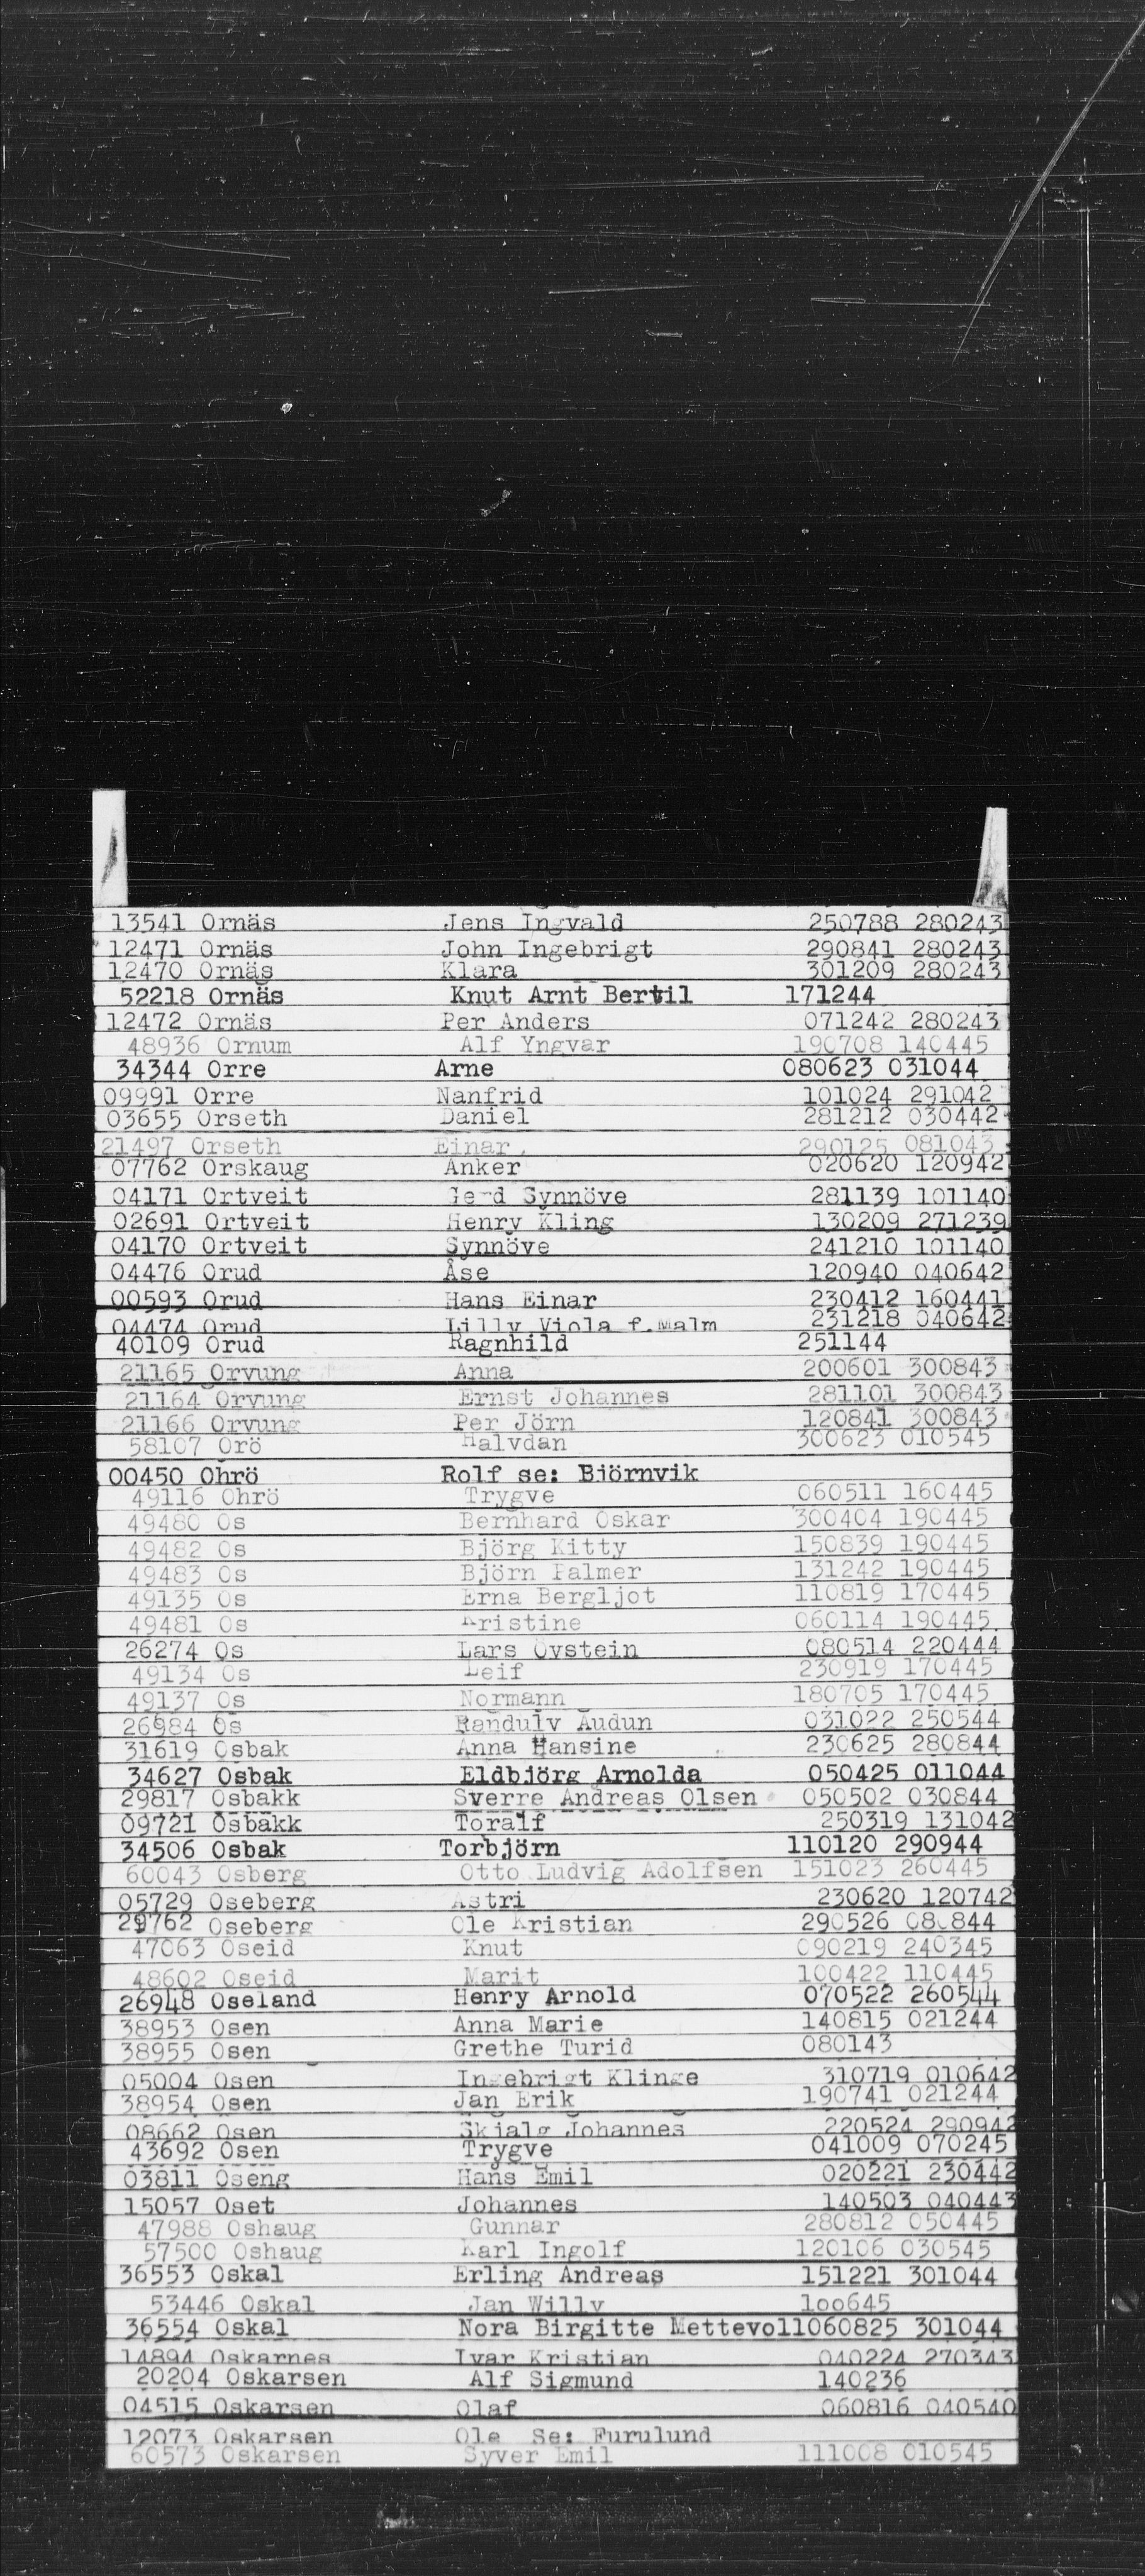 13541 Ornäs Jens Ingvald 250788 280243
12471 Ornäs John Ingebrigt 290841 280243
12470 Ornäs Klara 301209 280243
52218 Ornäs Knut Arnt Bertil 171244
12472 Ornäs Per Anders 071242 280243
48936 Ornum Alf Yngvar 190708 140445
34344 Orre Arne 080623 031044
09991 Orre Nanfrid 101024 291042
03655 Orseth Daniel 281212 030442
21497 Orseth Einar 290125 081043
07762 Orskaug Anker 020620 120942
04171 Ortveit Gerd Synnöve 281139 101140
02691 Ortveit Henry Kling 130209 271239
04170 Ortveit Synnöve 241210 101140
04476 Orud Åse 120940 040642
00593 Orud Hans Einar 230412 160441
04474 Orud Lilly Viola f.Malm 231218 040642
40109 Orud Ragnhild 251144
21165 Orvung Anna 200601 300843
21164 Orvung Ernst Johannes 281101 300843
21166 Orvung Per Jörn 120841 300843
58107 Orö Halvdan 300623 010545
00450 Ohrö Rolf se: Björnvik
49116 Ohrö Trygve 060511 160445
49480 Os Bernhard Oskar 300404 190445
49482 Os Björg Kitty 150839 190445
49483 Os Björn Palmer 131242 190445
49135 Os Erna Bergljot 110819 170445
49481 Os Kristine 060114 190445
26274 Os Lars Oystein 080514 220444
49134 Os Leif 230919 170445
49137 Os Normann 180705 170445
26984 Os Randulv Audun 031022 250544
31619 Osbak Anna Hansine 230625 280844
34627 Osbak Eldbjörg Arnolda 050425 011044
29817 Osbakk Sverre Andreas Olsen 050502 030844
09721 Osbakk Toralf 250319 131042
34506 Osbak Torbjörn 110120 290944
60043 Osberg Otto Ludvig Adolfsen 151023 260445
05729 Oseberg Astri 230620 120742
29762 Oseberg Ole Kristian 290526 080844
47063 Oseid Knut 090219 240345
48602 Oseid Marit 100422 110445
26948 Oseland Henry Arnold 070522 260544
38953 Osen Anna Marie 140815 021244
38955 Osen Grethe Turid 080143
05004 Osen Ingebrigt Klinge 310719 010642
38954 Osen Jan Erik 190741 021244
08662 Osen Skjalg Johannes 220524 290942
43692 Osen Trygve 041009 070245
03811 Oseng Hans Emil 020221 230442
15057 Oset Johannes 140503 040443
47988 Oshaug Gunnar 280812 050445
57500 Oshaug Karl Ingolf 120106 030545
36553 Oskal Erling Andreas 151221 301044
53446 Oskal Jan Willy 1oo645
36554 Oskal Nora Birgitte Mettevoll060825 301044
14894 Oskarnes Ivar Kristian 040224 270343
20204 Oskarsen Alf Sigmund 140236
04515 Oskarsen Olaf 060816 040540
12073 Oskarsen Ole Se: Furulund
60573 Oskarsen Syver Emil 111008 010545